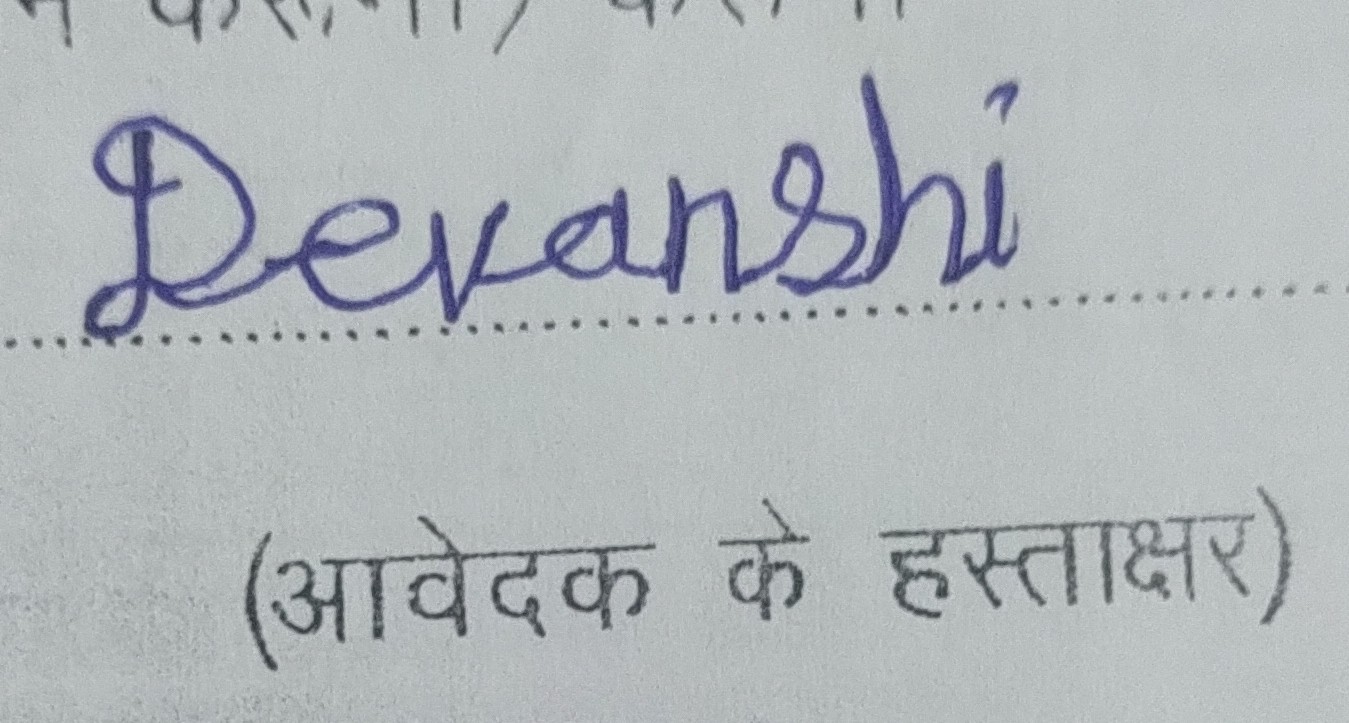 Devanshi
(आवेदक के हस्ताक्षर)